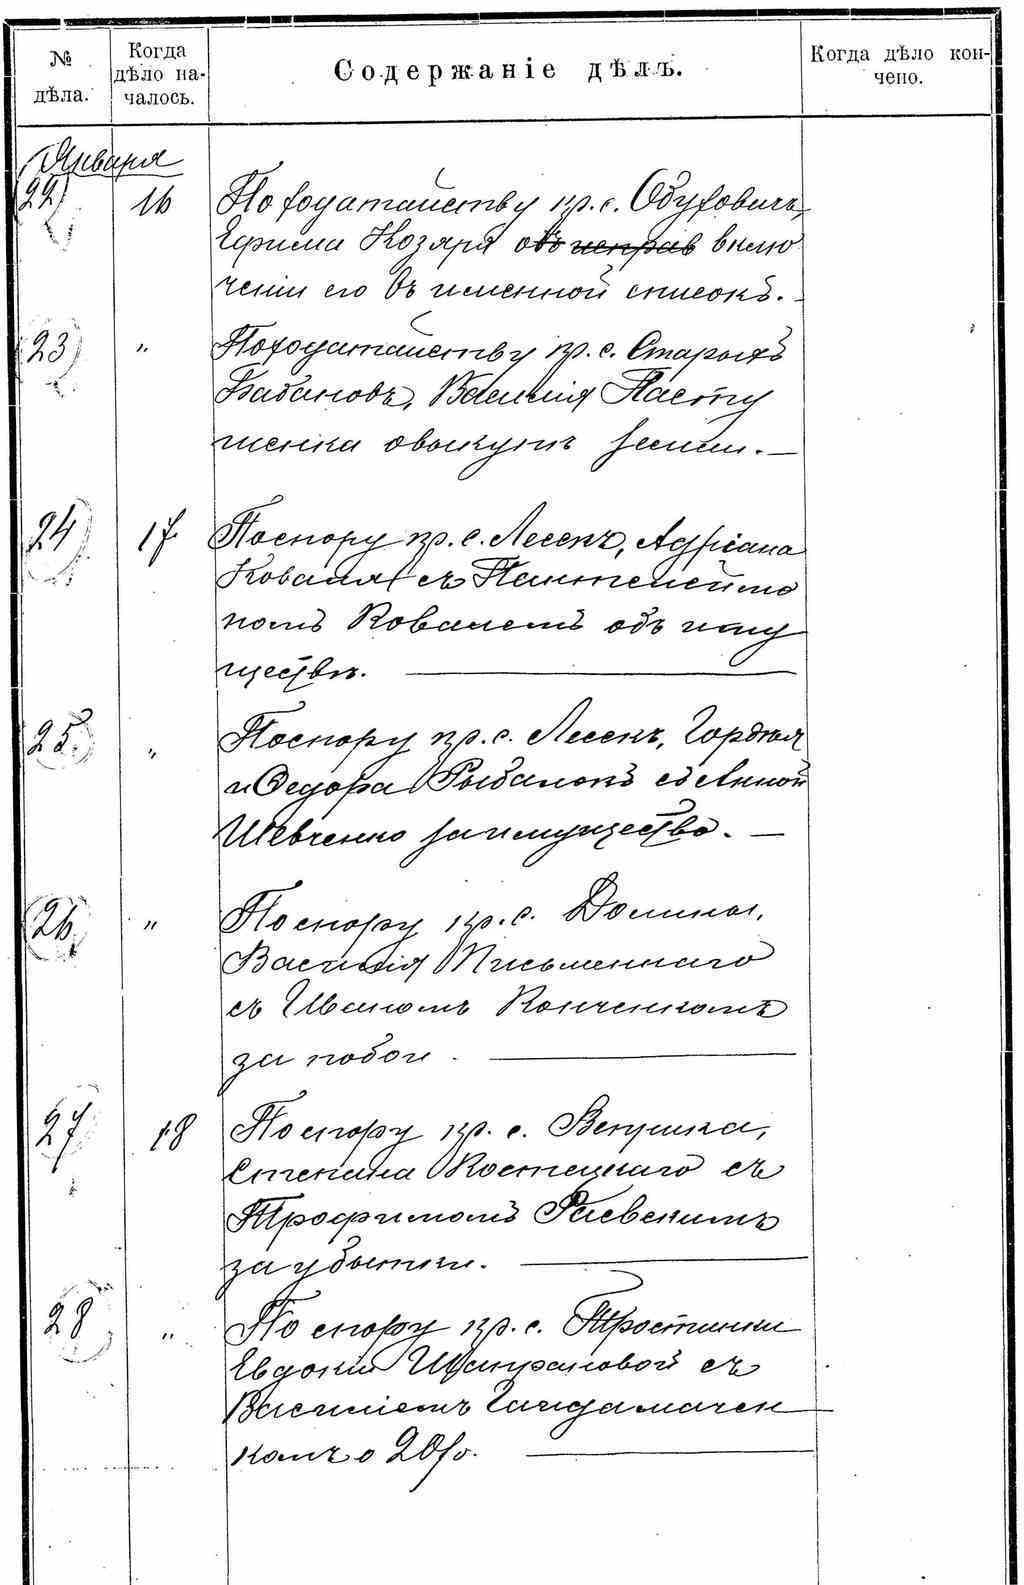 № дѣла.
Когда дѣло на-
чалось.
Содержаніе дѣлъ.
Когда дѣло кон-
чено.
Января
22 16 По ходатайству кр. с. Обуховичъ,
Ефима Козяря объ исправ вклю
ченіи его въ именной списокъ.
23 " По ходатайству кр. с. Старыхъ
Бабановъ, Василія Пасту
шенка о выкупѣ земли. —
24 17 По спору кр. с. Лесекъ, Адріана
Коваля съ Пантелеймо
номъ Ковалемъ объ иму
ществѣ. —
25 " По спору кр. с. Лесекъ, Гордѣя
и Федора Рыбалокъ съ Анной
Шевченко за имущество. —
26 " По спору кр. с. Долины,
Василія Письменнаго
съ Иваномъ Конченкомъ
за побои. —
27 18 По спору кр. с.
Степана Костецкаго съ
Трофимомъ Раевскимъ
за убытки. —
28 " По спору кр. с. Тростинки
Евдокіи Шапрановой съ
Василіемъ Гайдамачен
комъ о 20 р. —